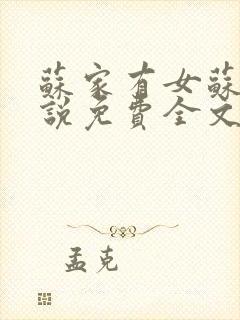 蘇家有女蘇
說免費全文
孟克